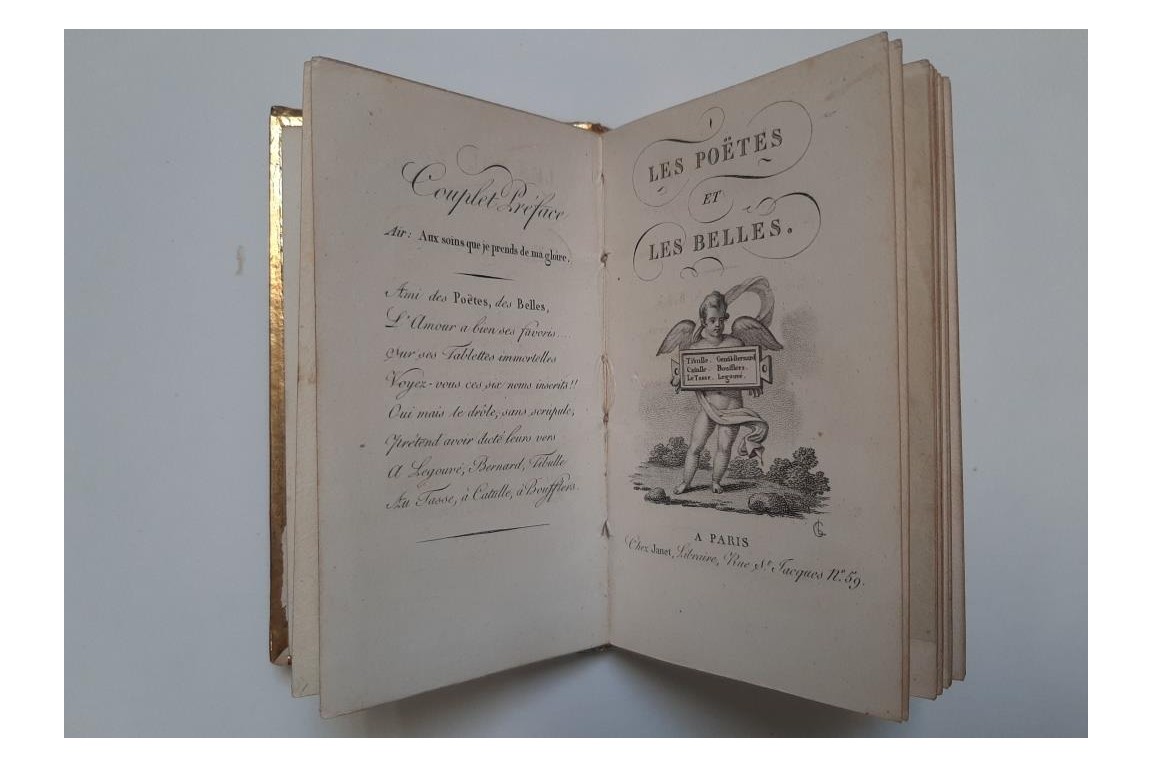 Couplet Préface
Air: Aux soins que je prends de ma gloire.
Ami des Poëtes, des Belles,
L'Amour a bien ses favoris...
Sur ses Tablettes immortelles
Voyez-vous ces six noms inscrits!!
Oui mais le drôle, sans scrupule,
Prétend avoir dicté leurs vers
A Legouvé, Bernard, Tibulle
Au Tasse, à Catulle, à Boufflers.
LES POËTES
ET
LES BELLES.
Tibulle. Gentil-Bernard
Catulle. Boufflers.
Le Tasse. Legouvé.
A PARIS
Chez Janet, Libraire, Rue St Jacques No. 59.